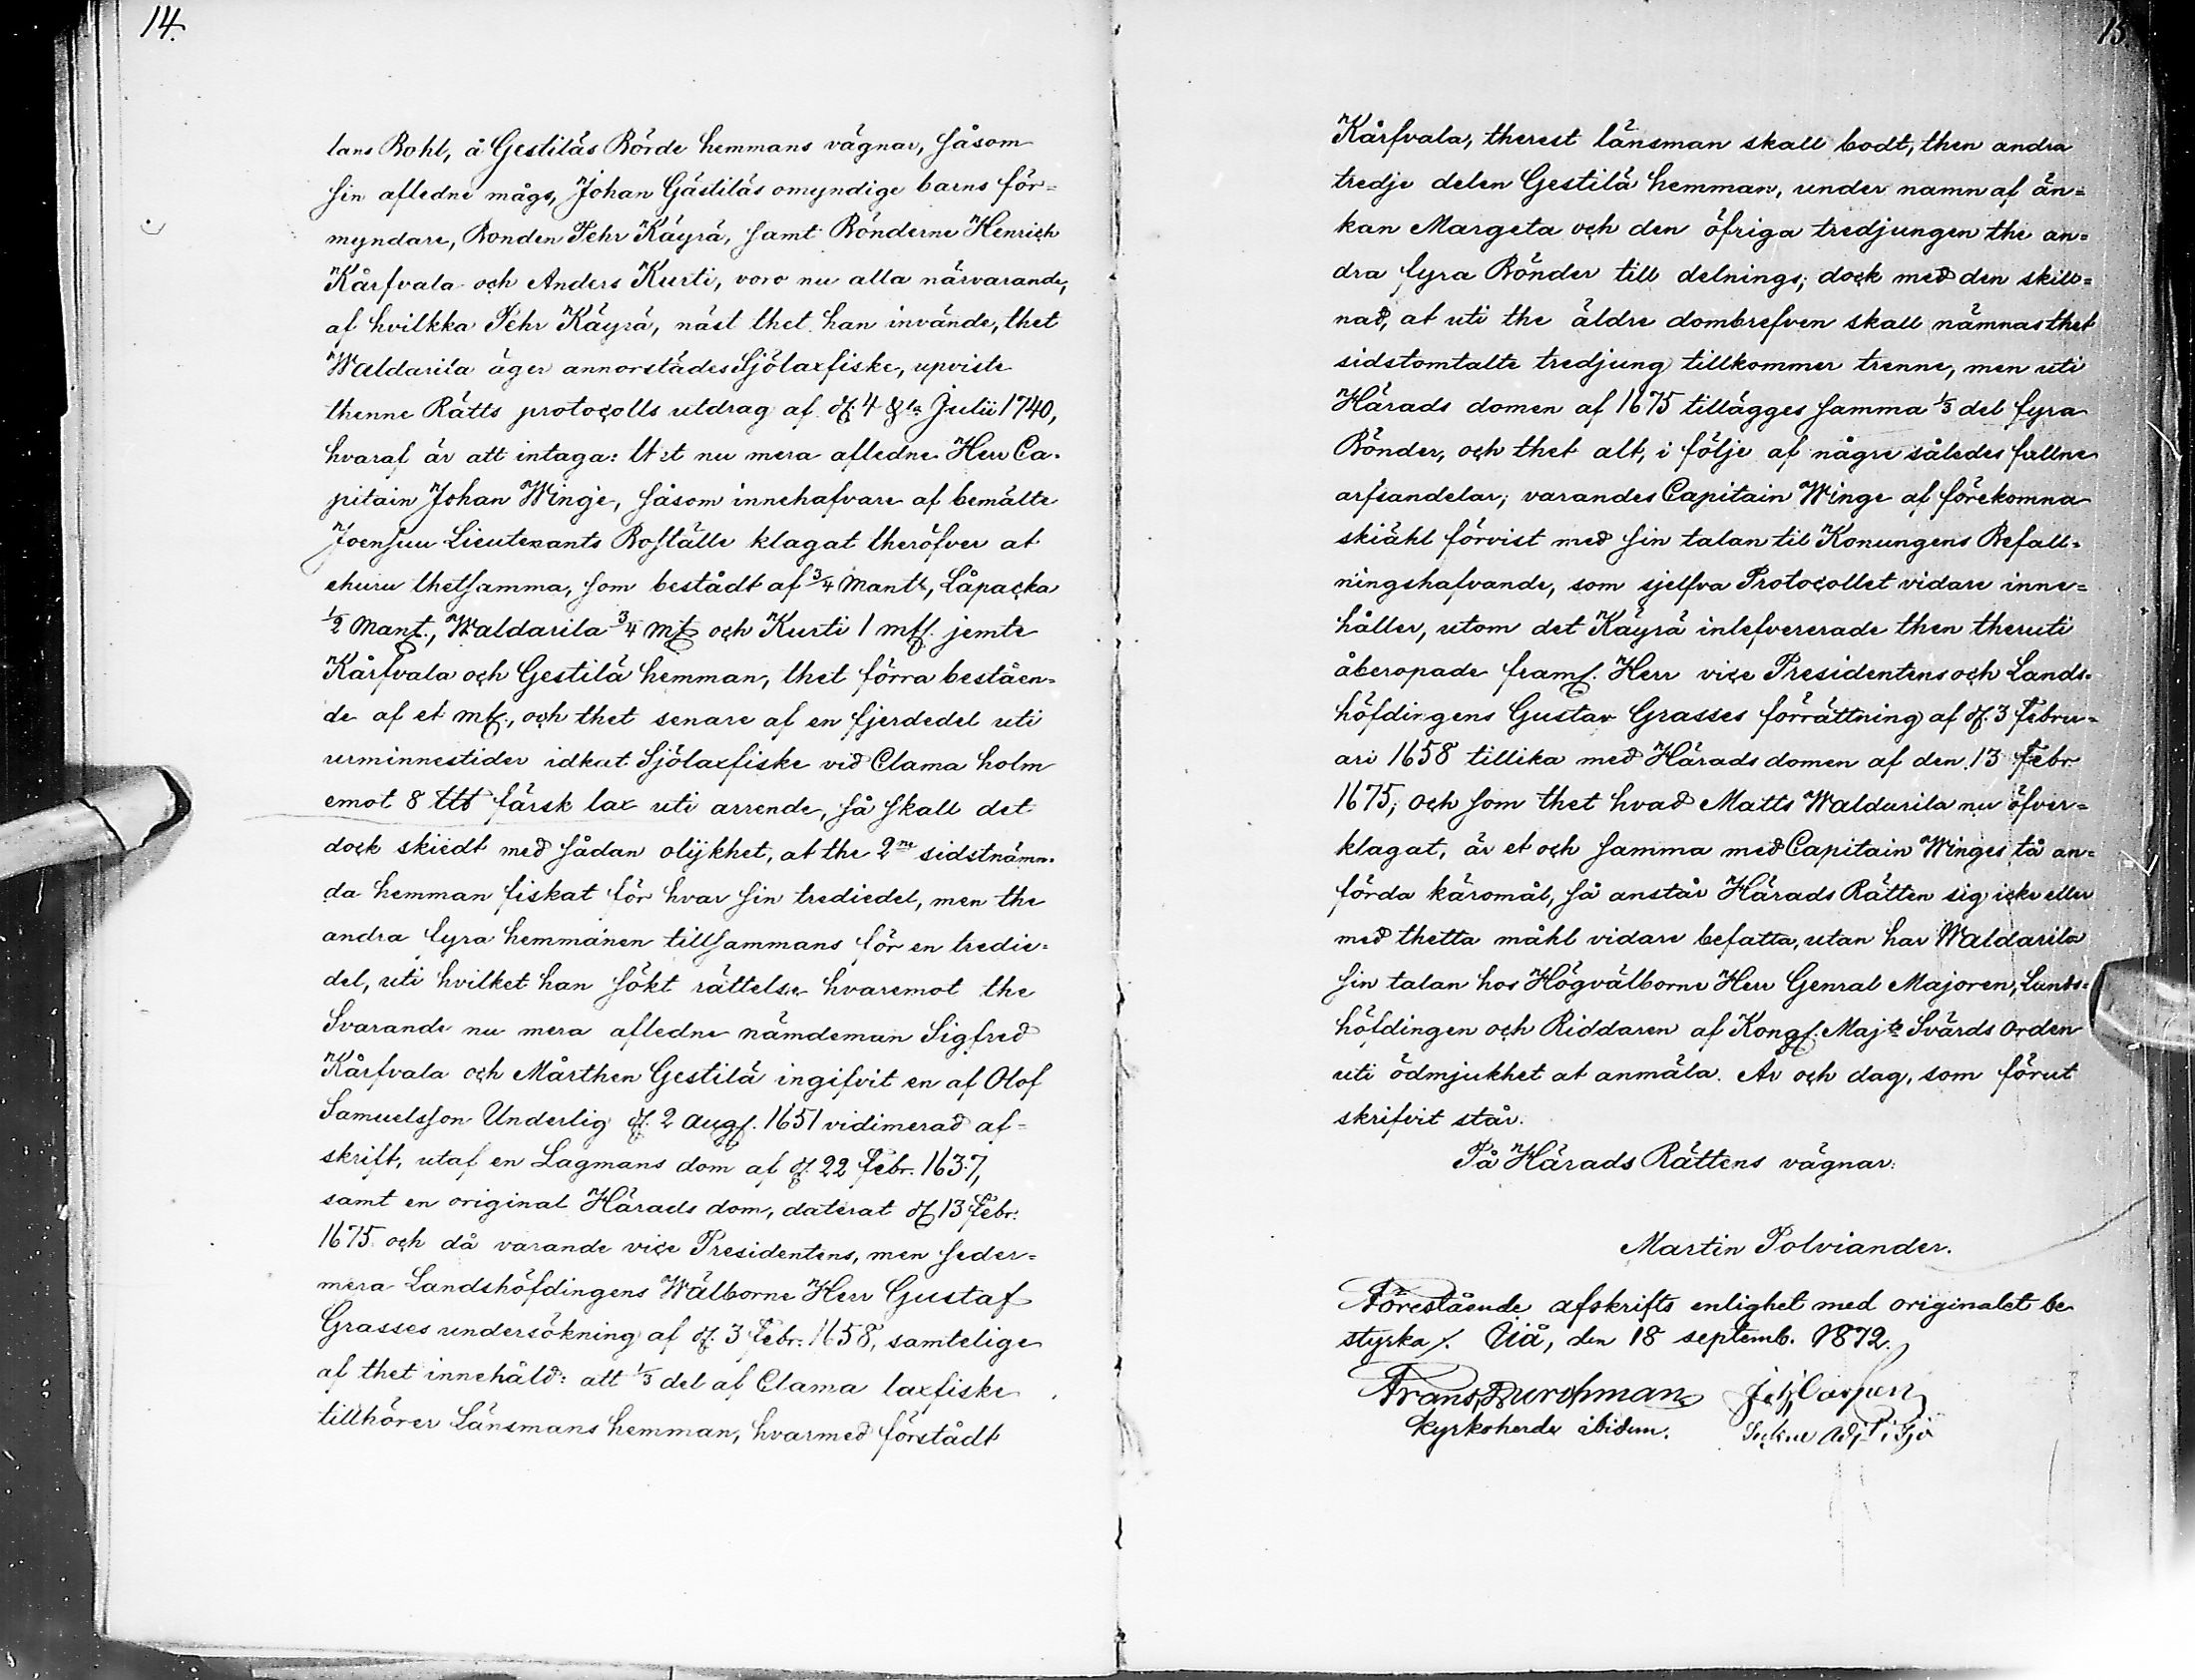 14.
lans Bohl, å Gestiläs Börde hemmans vägnar, såsom
sin afledne mågs, Johan Gästiläs omyndige barns för=
myndare, Bonden Pehr Käyrä, samt Bönderne Henrich
Kårfvala och Anders Kurti, voro nu alla närvarande,
af hvilkka Pehr Käyrä, näst thet han invände, thet
Waldarila äger annorstädes Sjölaxfiske, upviste
thenne Rätts protocolls utdrag af d. 4 Julii 1740,
hvaraf är att intaga: Utst nu mera afledne Herr Ca-
pitain Johan Winge, såsom innehafvare af bemälte
Joensuu Lieutenants Boställe klagat theröfver at
ehuru thetsamma, som bestådt af 3/4 Mantl, Låpacka
1/2 Mant., Waldarila 3/4 Mt och Kurti 1 mtl. jemte
Kårfvala och Gestilä hemman, thet förra beståen-
de af et mtl., och thet senare af en fjerdedel uti
urminnestider idkat Sjölaxfiske vid Clama holm
emot 8 färsk lax uti arrende, så skall det
dock skiedt med sådan olijkhet, at the 2ne sidstnämn-
da hemman fiskat för hvar sin trediedel, men the
andra fyra hemmanen tillsammans för en tredie=
del, uti hvilket han sökt rättelse hvaremot the
Svarande nu mera afledne nämdeman Sigfred
Kårfvala och Mårthen Gestilä ingifvit en af Olof
Samuelsson Underlig d. 2 Aug. 1651 vidimerad af=
skrift, utaf en Lagmans dom af d. 22 Febr. 1637,
samt en original Härads dom, daterat d. 13 Febr.
1675 och då varande vice Presidentens, men seder=
mera Landshöfdingens Wälborne Herr Gustaf
Grasses undersökning af d. 3 Febr. 1658, samtelige
af thet innehåld: att 1/3 del af Clama laxfiske
tillhörer Länsmans hemman, hvarmed förstådt
15
Kårfvala, therest länsman skall bodt, then andra
tredje delen Gestilä hemman, under namn af än=
kan Margeta och den öfriga tredjungen the an=
dra fyra Bönder till delnings; dock med den skill=
nad, at uti the äldre dombrefven skall nämnas thet
sidstomtalte tredjung tillkommer trenne, men uti
Härads domen af 1675 tillägges samma 1/3 del fyra
Bönder, och thet alt, i följe af någre således fallne
arfsandelar; varandes Capitain Winge af förekomna
skiähl förvist med sin talan til Konungens Befall=
ningshafvande, som sjelfva Protocollet vidare inne=
håller, utom det Käyrä inlefvererade then theruti
åberopade framl. Herr vice Presidentens och Lands-
höfdingens Gustav Grasses förrättning af d. 3 Febru=
ari 1658 tillika med Härads domen af den 13 Febr.
1675; Och som thet hvad Matts Waldarila nu öfver=
klagat, är et och samma med Capitain Winges tå an=
förda käromål, så anstår Härads Rätten sig icke eller
med thetta måhl vidare befatta, utan har Waldarila
sin talan hos Högvälborne Herr Genral Majoren, Lands=
höfdingen och Riddaren af Kongl. Majts Svärds Orden
uti ödmjukhet at anmäla. År och dag, som förut
skrifvit står.
På Härads Rättens vägnar:
Martin Polviander.
Förestående afskrifts enlighet med originalet be
styrka /. Iiå, den 18 septemb. 1872.
Frans Durchman
kyrkoherde ibidem.